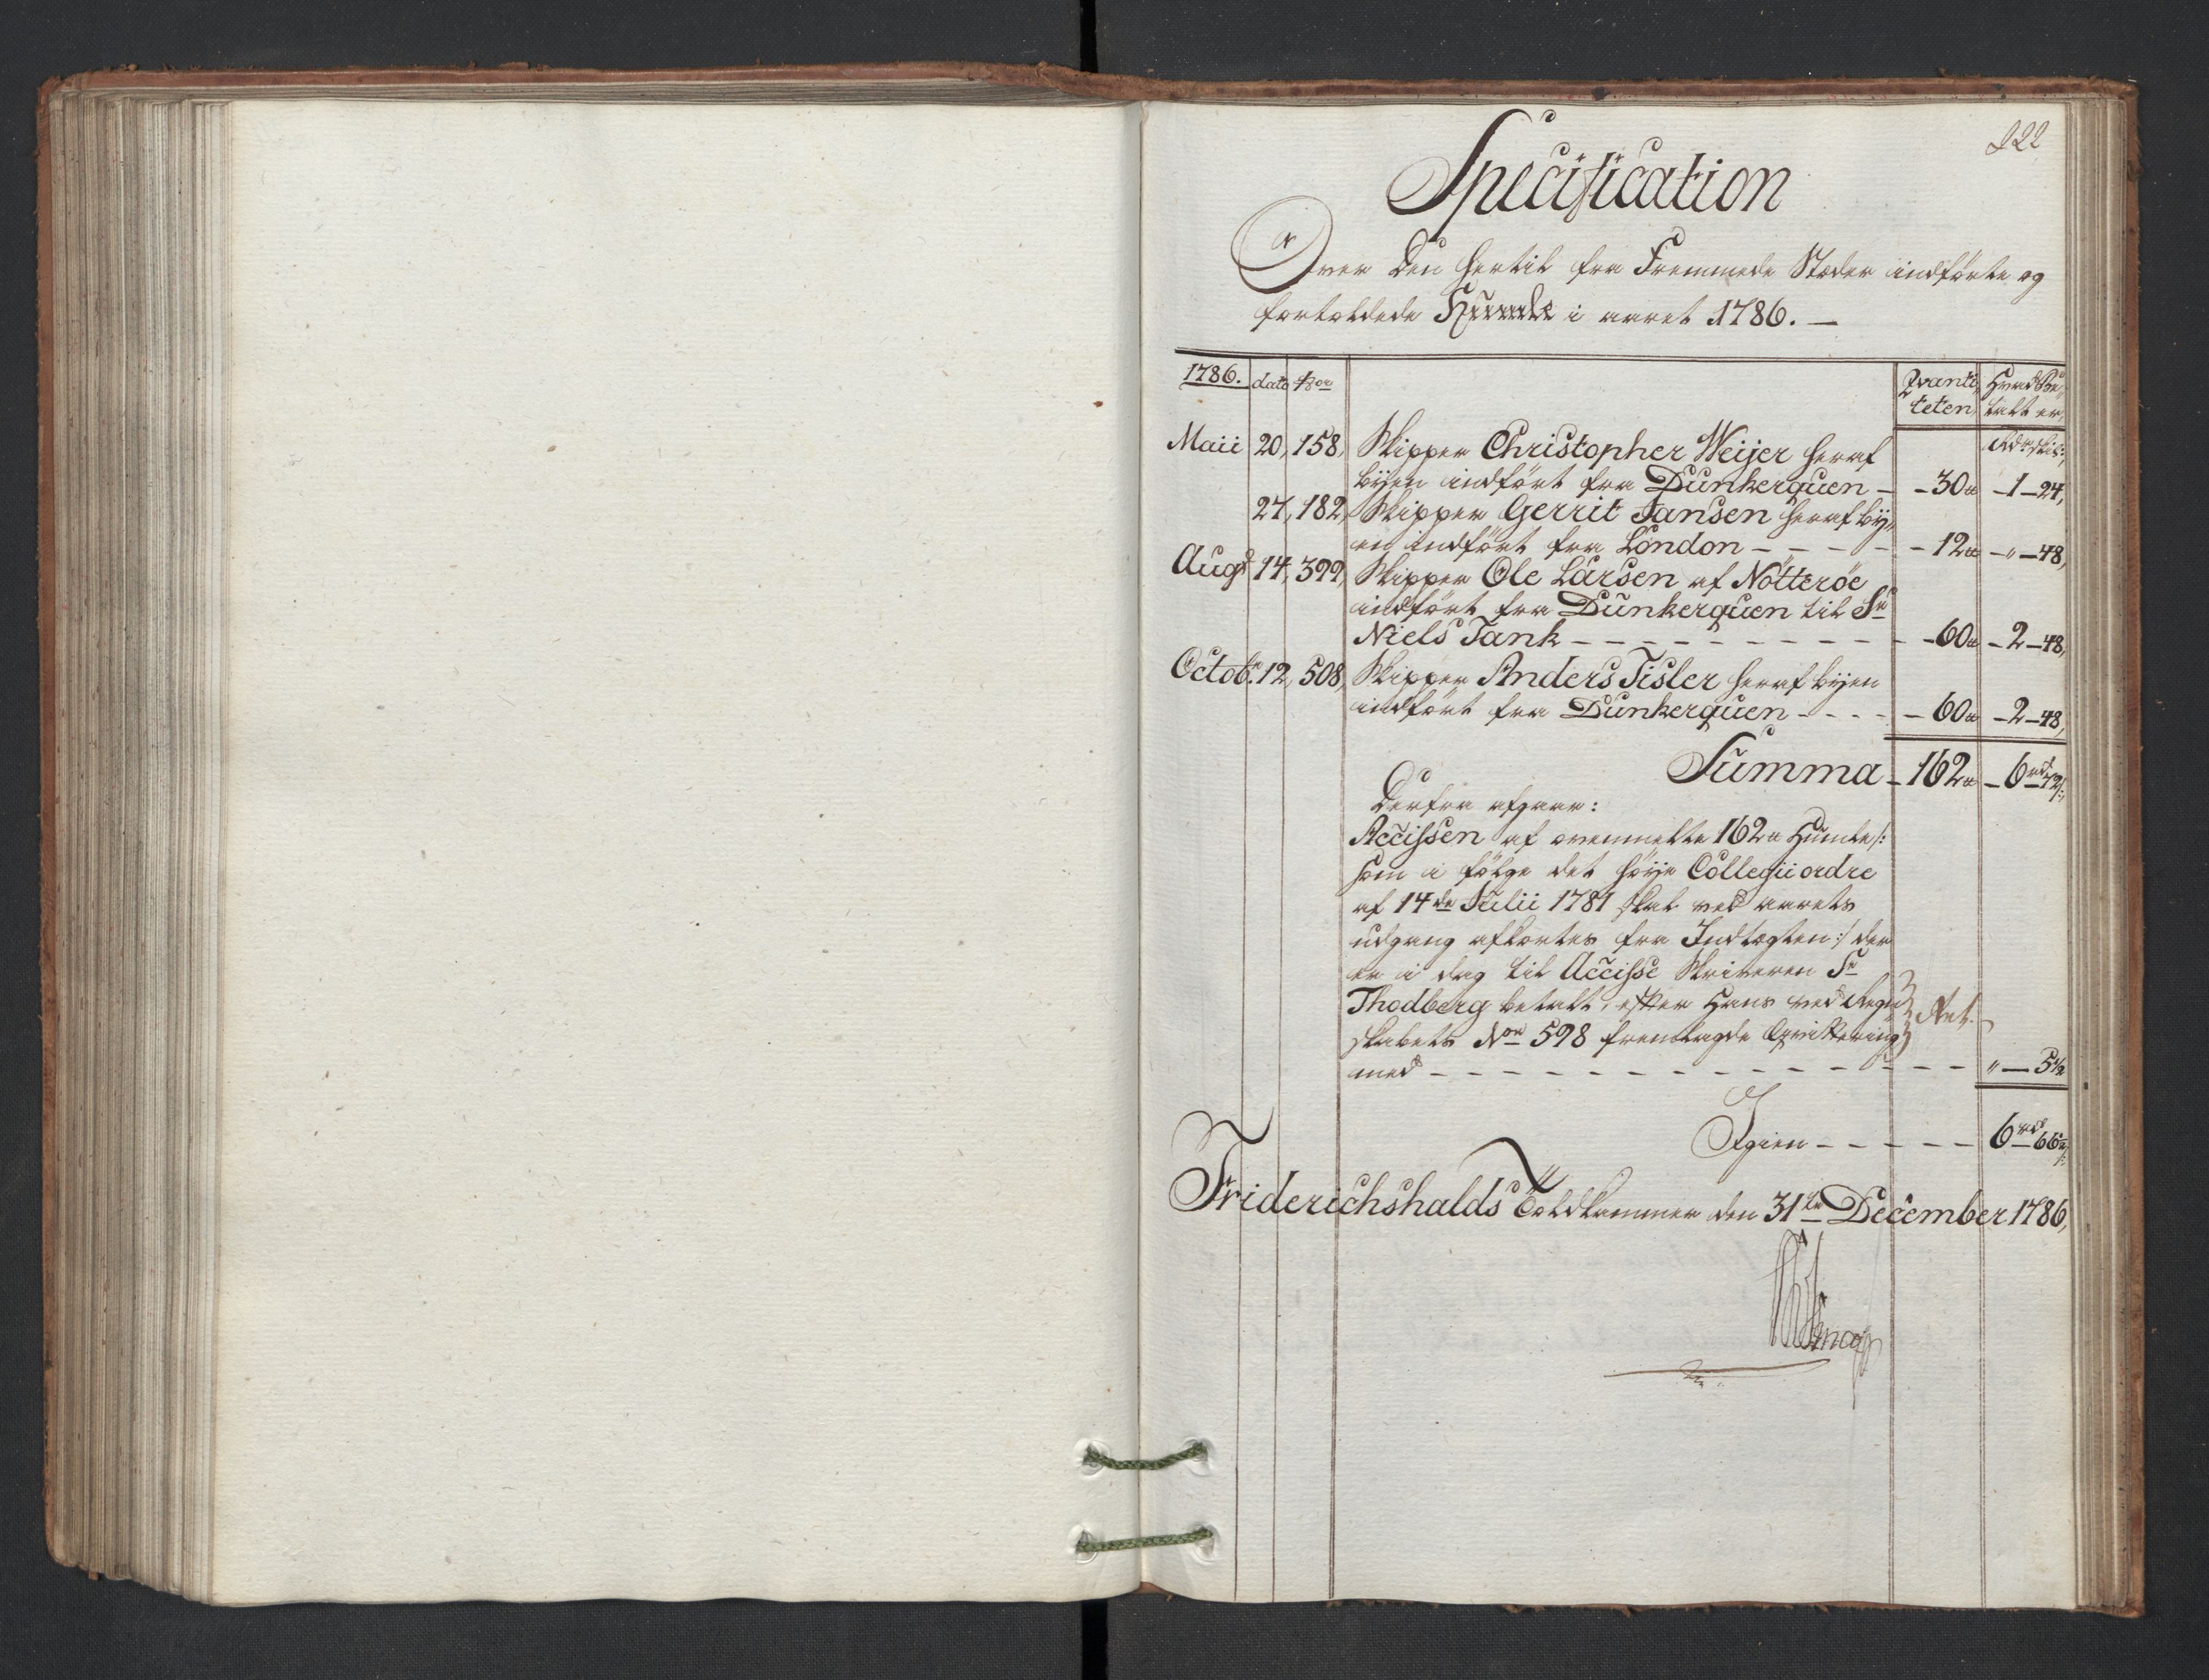 222
Specification
Over den hertil fra Fremmede Stæder indførte og
fortoldede Humle i aaret 1786. —
1786. dato Nor Qvanti, Hvad be,
teten talt er,
Rdr skil:
Maii 20, 158, Skipper Christopher Weijer heraf
byen indført fra Dünkerquen — 30 ℔ 1 — 24,
27, 182, Skipper Gerrit Jansen heraf by,
en indført fra London — 12 ℔ „ — 48,
Augst 14, 399, Skipper Ole Larsen af Nötterøe
indført fra Dünkerquen til Sr
Niels Tank — 60 ℔ 2 — 48,
Octobr. 12, 508, Skipper Anders Tisler heraf byen
indført fra Dünkerquen — 60 ℔ 2 — 48,
Summa — 162 ℔ 6 rd 72 s:
Derfra afgaar:
Accissen af ovenmelte 162 ℔ Humle /:
som i følge det høye Collegii ordre
af 14de Julii 1781 skal ved aarets
udgang afkortes fra Indtægten :/ der
er i dag til Accisse Skriveren Sr
Thodberg betalt, efter Hans ved Regn
skabets No 598 fremlagde Qvittering
med — „ — 5½
Igien — 6 rd 66½ s:
Friderichshalds Toldkammer den 31te December 1786,